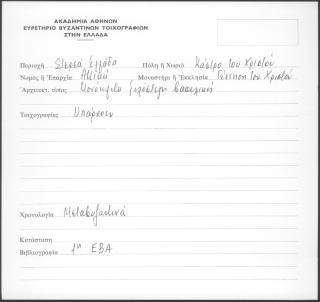 ΑΚΑΔΗΜΙΑ ΑΘΗΝΩΝ
ΕΥΡΕΤΗΡΙΟ ΒΥΖΑΝΤΙΝΩΝ ΤΟΙΧΟΓΡΑΦΙΩΝ
ΣΤΗΝ ΕΛΛΑΔΑ
Περιοχή Στερεά Ελλάδα Πόλη ή Χωριό Κάστρο του Χριστού
Νομός ή Επαρχία Αττική Μοναστήρι ή Εκκλησία Γέννηση του Χριστού
Αρχιτεκτ. τύπος Μονόκλιτη ξυλόστεγη βασιλική
Τοιχογραφίες Υπάρχουν
Χρονολογία Μεταβυζαντινά
Κατάσταση
Βιβλιογραφία 1η ΕΒΑ